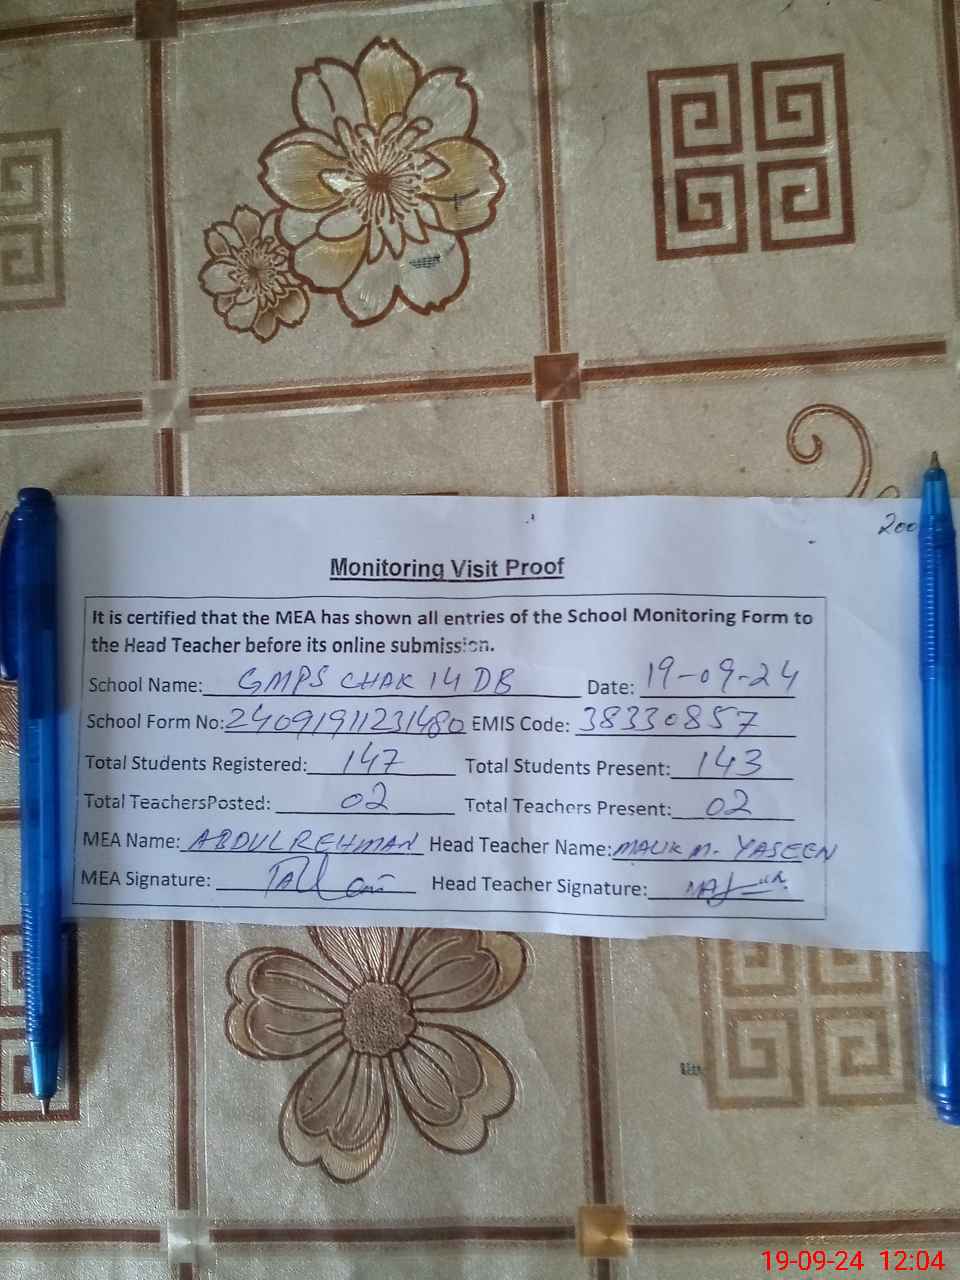 200
Monitoring Visit Proof
It is certified that the MEA has shown all entries of the School Monitoring Form to
the Head Teacher before its online submission.
School Name: GMPS CHAK 14 DB Date: 19-09-24
School Form No: 24091911231480 EMIS Code: 38330857
Total Students Registered: 147 Total Students Present: 143
Total TeachersPosted: 02 Total Teachers Present: 02
MEA Name: ABDUL REHMAN Head Teacher Name: MALIK M. YASEEN
MEA Signature: Head Teacher Signature:
19-09-24 12:04